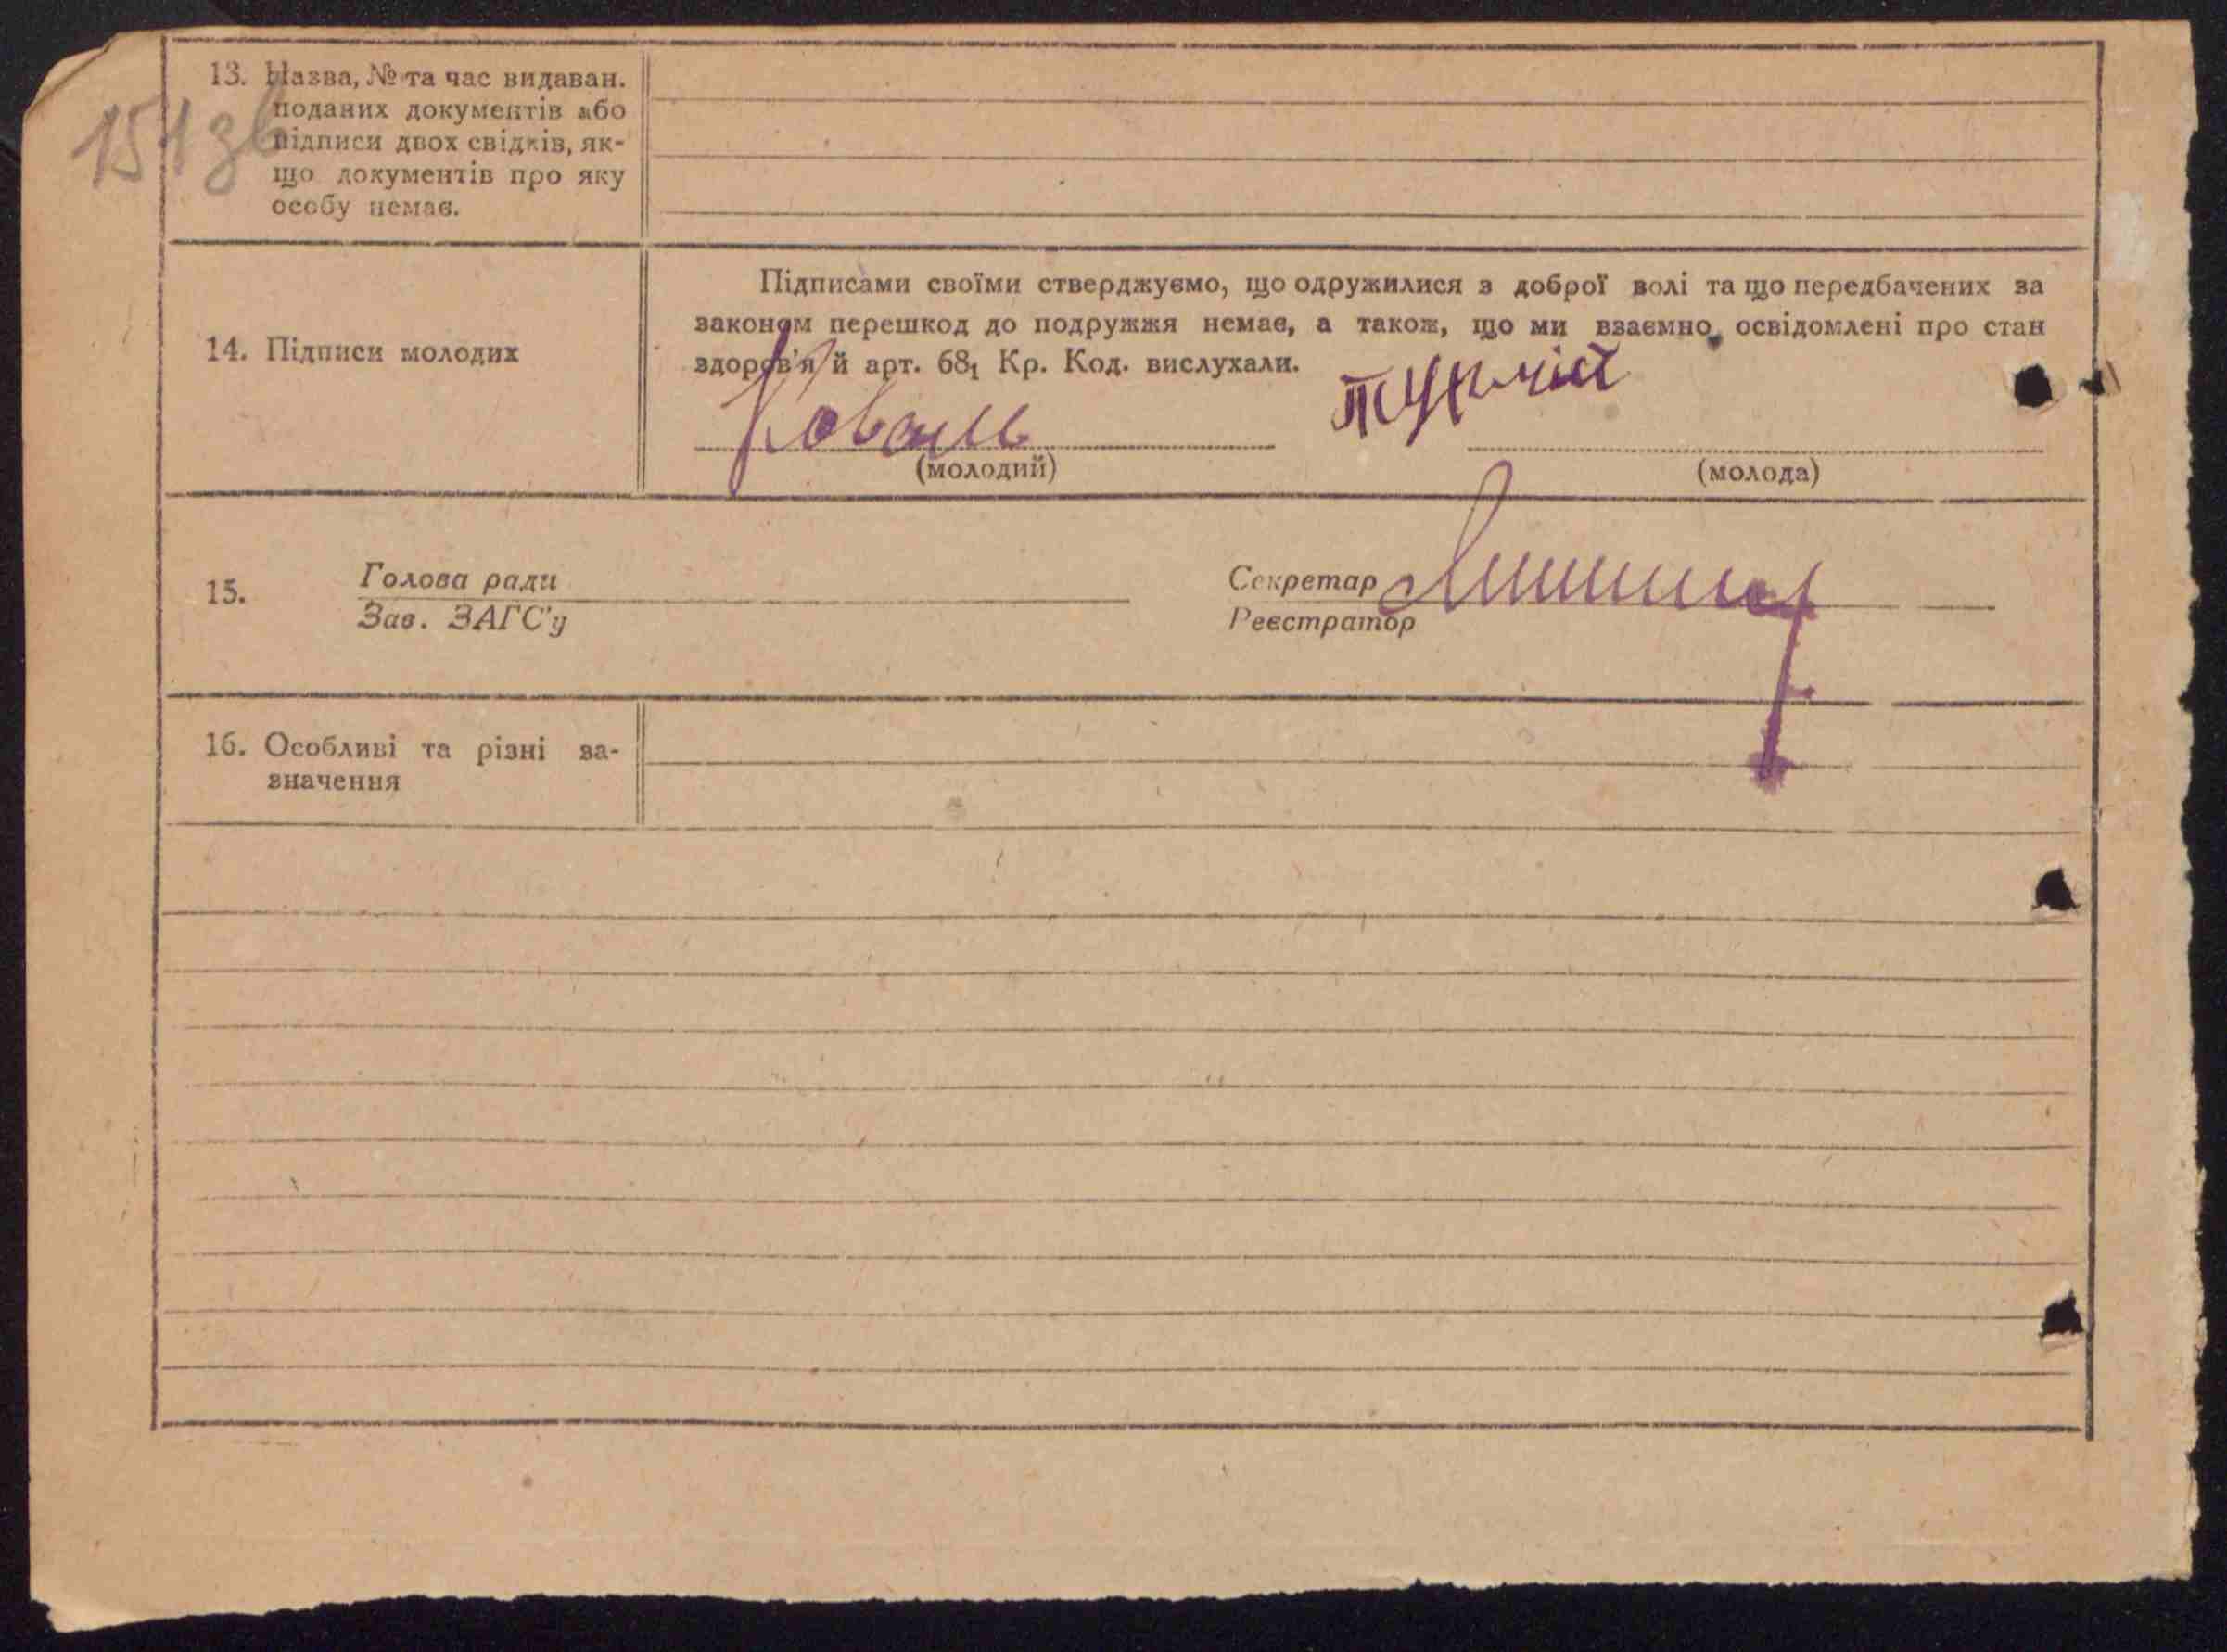 151 зв
13. Назва, № та час видаван.
поданих документів або
підписи двох свідків, як-
що документів про яку
особу немає.
14. Підписи молодих
Підписами своїми стверджуємо, що одружилися з доброї волі та що передбачених за
законом перешкод до подружжя немає, а також, що ми взаємно освідомлені про стан
здоров'я й арт. 68₁ Кр. Код. вислухали.
Коваль
(молодий)
(молода)
15.
Голова ради
Зав. ЗАГС'у
Секретар
Реєстратор
16. Особливі та різні за-
значення